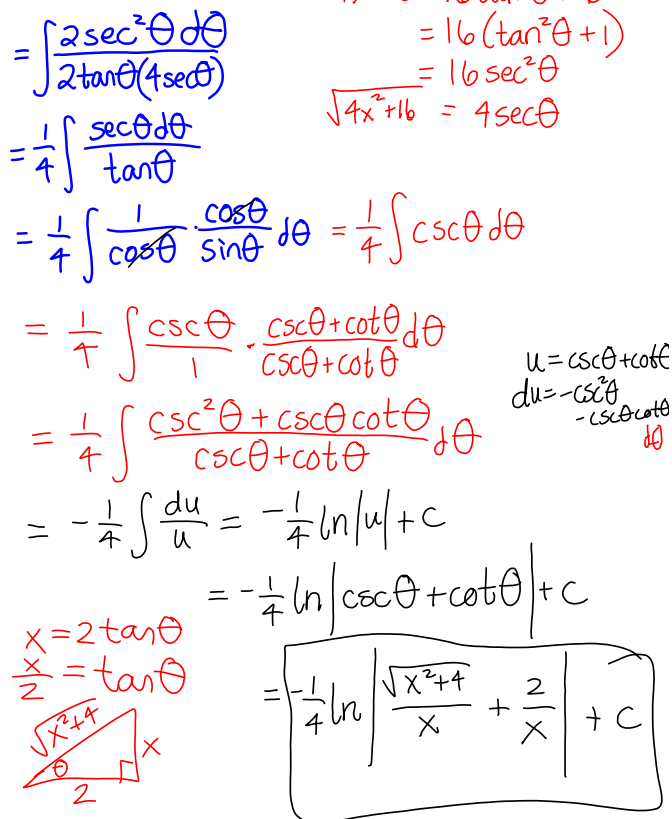 = ∫ 2sec²θ dθ / 2tanθ(4secθ)
= 16(tan²θ + 1)
= 16 sec²θ
√4x²+16 = 4secθ
= 1/4 ∫ secθdθ / tanθ
= 1/4 ∫ 1/cosθ · cosθ/sinθ dθ = 1/4 ∫ cscθ dθ
= 1/4 ∫ cscθ/1 · cscθ+cotθ / cscθ+cotθ dθ
u = cscθ+cotθ
du = -csc²θ
-cscθcotθ
dθ
= 1/4 ∫ csc²θ + cscθ cotθ / cscθ+cotθ dθ
= -1/4 ∫ du/u = -1/4 ln|u| + C
= -1/4 ln|cscθ+cotθ| + C
x = 2tanθ
x/2 = tanθ
= -1/4 ln|√x²+4 / x + 2/x| + C
√x²+4
θ
x
2